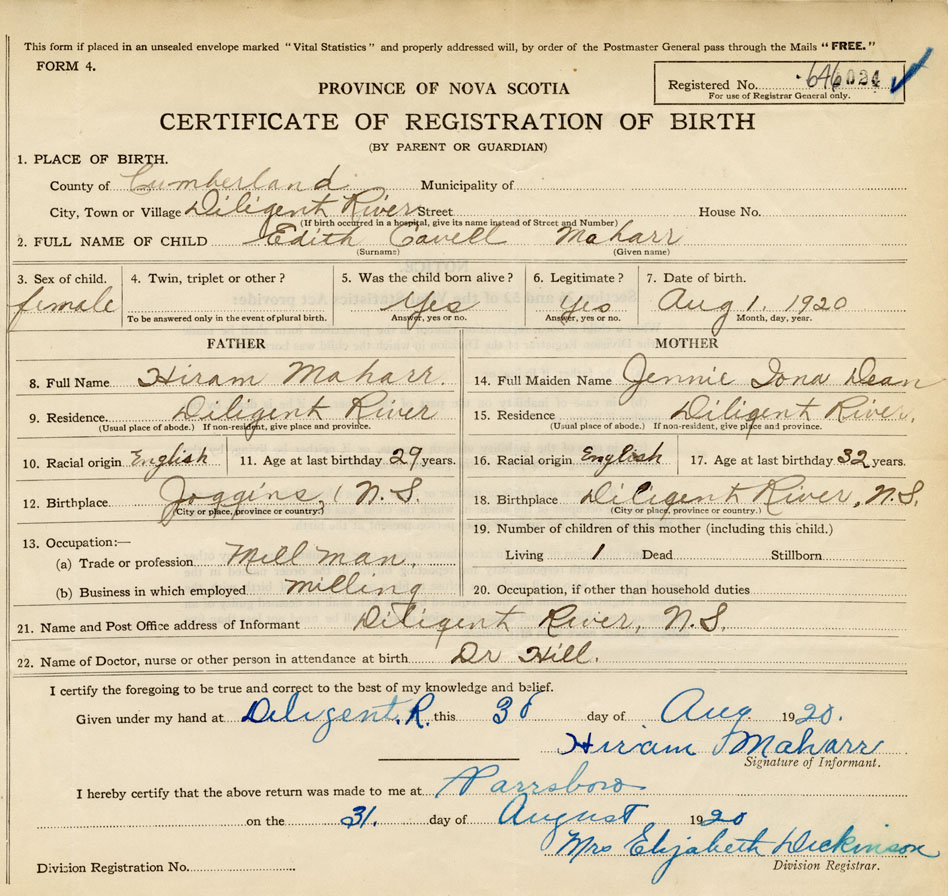 This form if placed in an unsealed envelope marked "Vital Statistics" and properly addressed will, by order of the Postmaster General pass through the Mails "FREE."
FORM 4.
Registered No. 646024
For use of Registrar General only.
PROVINCE OF NOVA SCOTIA
CERTIFICATE OF REGISTRATION OF BIRTH
(BY PARENT OR GUARDIAN)
1. PLACE OF BIRTH.
County of Cumberland Municipality of
City, Town or Village Diligent River Street House No.
(If birth occurred in a hospital, give its name instead of Street and Number)
2. FULL NAME OF CHILD Edith Cavell Maharr
(Surname) (Given name)
3. Sex of child. 4. Twin, triplet or other? 5. Was the child born alive? 6. Legitimate? 7. Date of birth.
female Yes Yes Aug 1. 1920
To be answered only in the event of plural birth. Answer, yes or no. Answer, yes or no. Month, day, year.
FATHER MOTHER
8. Full Name Hiram Maharr. 14. Full Maiden Name Jennie Iona Dean
9. Residence. Diligent River 15. Residence Diligent River,
(Usual place of abode.) If non-resident, give place and province. (Usual place of abode.) If non-resident, give place and province.
10. Racial origin English 11. Age at last birthday 29 years. 16. Racial origin English 17. Age at last birthday 32 years.
12. Birthplace Joggins, N.S. 18. Birthplace Diligent River, N.S.
(City or place, province or country.) (City or place, province or country.)
19. Number of children of this mother (including this child.)
13. Occupation:—
(a) Trade or profession Mill man. Living 1 Dead Stillborn
(b) Business in which employed milling 20. Occupation, if other than household duties
21. Name and Post Office address of Informant Diligent River, N.S.
22. Name of Doctor, nurse or other person in attendance at birth Dr Hill.
I certify the foregoing to be true and correct to the best of my knowledge and belief.
Given under my hand at Diligent. R. this day of Aug 1920.
Hiram Maharr
Signature of Informant.
I hereby certify that the above return was made to me at Parrsboro
on the 31. day of August 1920
Mrs Elizabeth Dickinson
Division Registration No. Division Registrar.